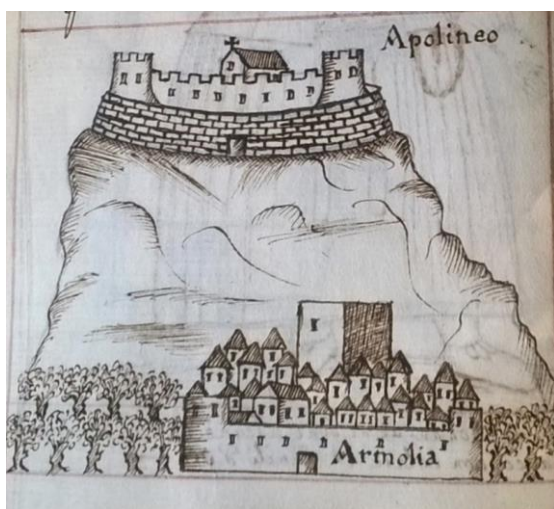 Apolineo
Armolia